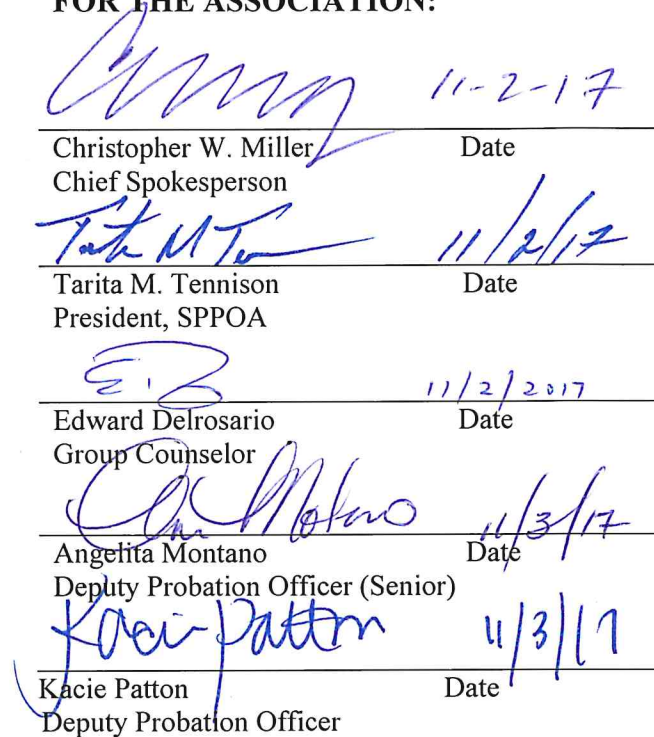 FOR THE ASSOCIATION:
11-2-17
Christopher W. Miller Date
Chief Spokesperson
11/2/17
Tarita M. Tennison Date
President, SPPOA
11/2/2017
Edward Delrosario Date
Group Counselor
11/3/17
Angelita Montano Date
Deputy Probation Officer (Senior)
Kacie Patton 11/3/17
Kacie Patton Date
Deputy Probation Officer